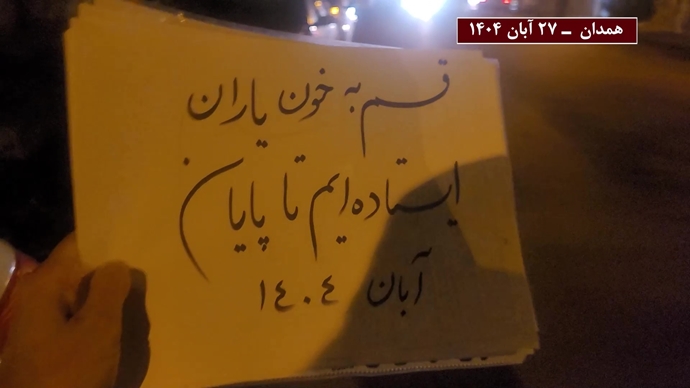 همدان ــ ۲۷ آبان ۱۴۰۴
قسم به خون یاران
ایستاده‌ایم تا پایان
آبان ۱۴۰۴